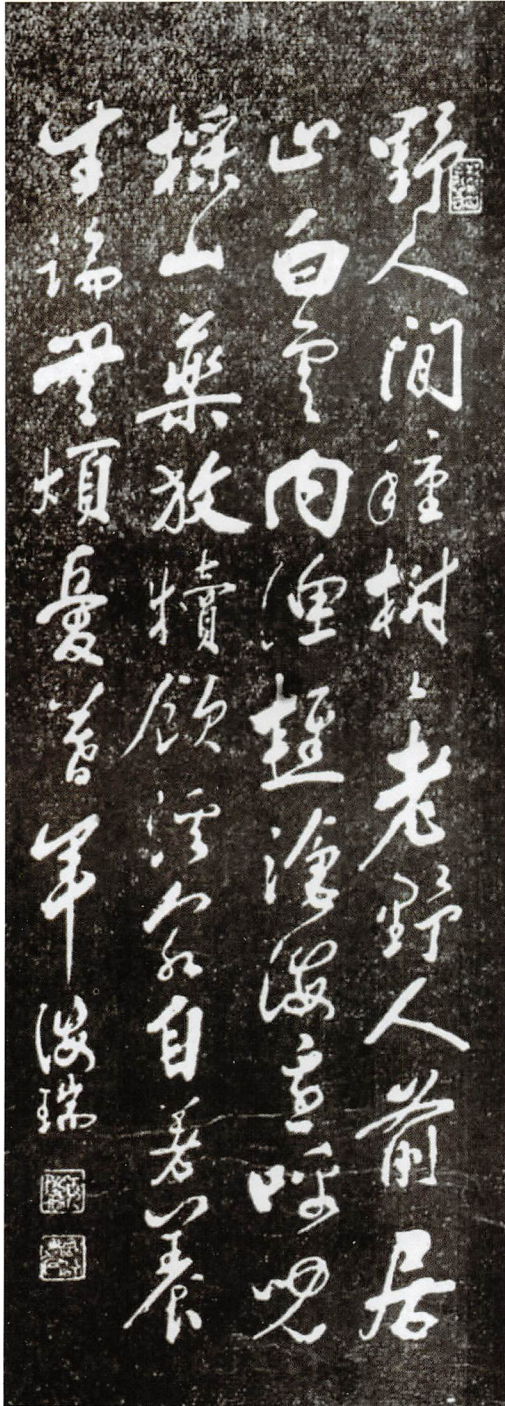 野人閒種樹〻老野人前居
止白雲內漁樵滄海邊呼兒
採山藥放犢飲溪泉自著養
生論無煩憂暮年海瑞